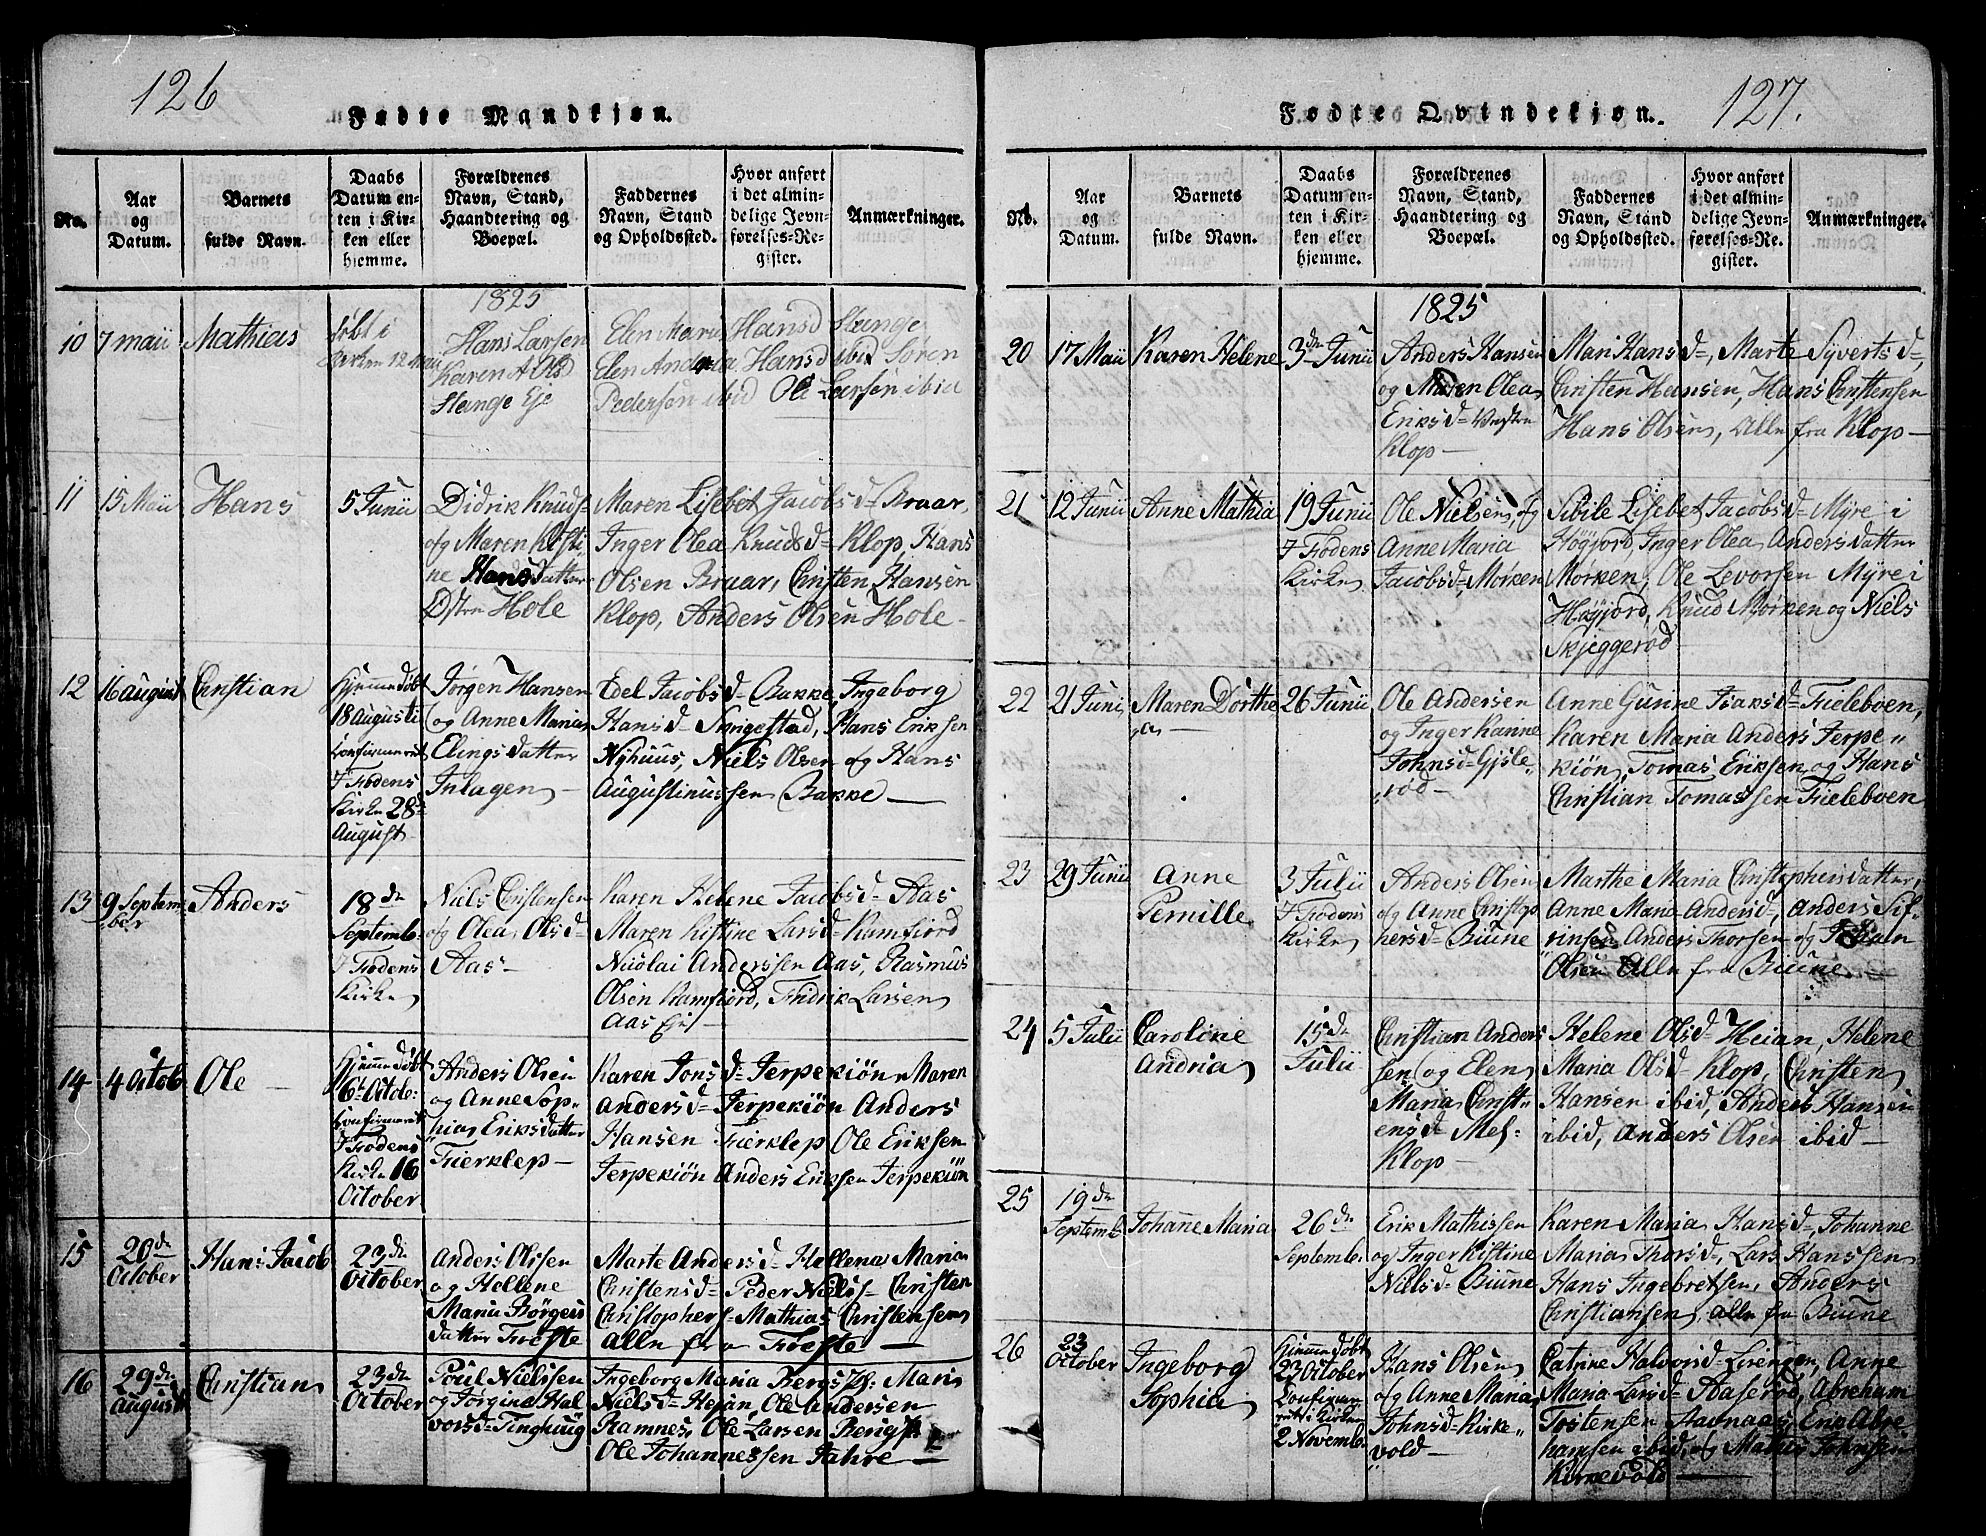 126
Fødte Mandkjøn.
No.
Aar
og
Datum.
Barnets
fulde Navn.
Daabs
Datum en-
ten i Kir-
ken eller
hjemme.
Forældrenes
Navn, Stand,
Haandtering og
Boepæl.
Faddernes
Navn, Stand
og Opholdssted.
Hvor anført
i det almin-
delige Jevn-
førelses-Re-
gister.
Anmærkninger.
1825
10
7 maii
Mathias
døbt i
Kirken 12 maii
Hans Larsen
Karen A Olsd
Hange Eje
Elen Maria Hansd Hange
Elen Andrea Hansd ibid Søren
Pedersen ibid Ole Larsen ibid
11
15 Maii
Hans
5 Junii
Didrik Knuds-
og Maren Kisti
ne Hansdatter
Østre Hole
Maren Lisebet Jacobsd= Braar,
Inger Olea Knudsd= Klop, Hans
Olsen Braar, Christen Hansen
Klop, Anders Olsen Hole-
12
16 august
Christian
Hjemme døbt
18 Augusti
Confirmeret
i Fodens
Kirke 28de
August
Jørgen Hansen
og Anne Maria
Elingsdatter
Inlagen-
Edel Jacobsd= Bakke, Ingeborg
Hansd= Sungestad, Hans Eriksen
Nyhuus, Niels Olsen og Hans
Augustinussen Bakke-
13
9 Septem
ber
Anders
18de
Septemb-
i Fodens
Kirke
Niels Christensen
og Olea Olsd=
Aas-
Karen Helene Jacobsd= Aas
Maren Kistine Larsd= Kamfiord
Nicolai Anderssen Aas, Rasmus
Olsen Kamfiord, Fridrik Larsen
Aas Eje-
14
4 Octob
Ole-
Hjemme døbt
6te Octob-
Confirmeret
i Fodens
Kirke 16
October
Anders Olsen
og Anne Sop-
hia Eriksdatter
Fierklep-
Karen Jonsd= Jerpekiøn Maren
Andersd= Jerpekiøn Anders
Hansen Fierklep Ole Eriksen
Jerpekiøn Anders Eriksen Jerpekiøn
15
20de
October
Hans Jacob
23de
October
Anders Olssen
og Hellene
Maria Børgers
datter Froeste
Marte Andersd= Hellena Maria
Christensd= Peder Niels- Christen
Christophers- Mathias Christensen
alle fra Froeste-
16
29de
August
Christian
23de
October
Poul Nielssen
og Jørgina Hal
vorsd= Tinghuug
Ingeborg Maria Bergs Hf: Maria
Nielsd= Hejan, Ole Andersen
Ramnes, Ole Larsen Berg
Ole Johannessen Fahre-
127.
Fødte Qvindekjøn.
No.
Aar
og
Datum.
Barnets
fulde Navn.
Daabs
Datum en-
ten i Kir-
ken eller
hjemme.
Forældrenes
Navn, Stand,
Haandtering og
Boepæl.
Faddernes
Navn, Stand
og Opholdssted.
Hvor anført
i det almin-
delige Jevn-
førelses-Re-
gister.
Anmærkninger.
1825
20
17 Maii
Karen Helene
3de Junii
Anders Hansen
og Maren Olea
Eriksd= Vestre
Klop-
Mari Hansd=, Marte Syvertsd=,
Christen Hansen, Hans Christensen
Hans Olsen, Alle fra Klop-
21
12 Junii
Anne Mathia
19 Junii
i Fodens
Kirke
Ole Nielsen, og
Anne Maria
Jacobsd= Mørken
Sibile Lisebet Jacobsd= Myre i
Høyjord, Inger Olea Andersdatter
Mørken, Ole Levorsen Myre i
Høyjord, Knud Mørken og Niels
Skjeggerød-
22
21 Juni
Maren Dorthe
a-
26 Junii
Ole Andersen
og Inger Karine
Johnsd= Gisle-
rød-
Anne Gurine Isaksd= Fieleboen,
Karen Maria Anders Jerpe-
kiøn, Tomas Eriksen og Hans
Christian Tomassen Fieleboen
23
29 Junii
Anne
Pernille
3 Julii
i Fodens
Kirke
Anders Olsen
og Anne Christop
hersd= Biune
Marthe Maria Christophersdatter,
Anne Maria Andersd= Anders Sif-
rinsen Anders Thorsen og Johan
Olsen Alle fra Biune-
24
5 Julii
Caroline
Andria
15de
Julii
Christian Anders
sen og Elen
Maria Christ-
ensd= Mel-
Klop-
Helene Olsd= Heian, Helene
Maria Olsd= Klop, Christen
Hansen ibid, Anders Hansen
ibid, Anders Olsen ibid-
25
19de
Septemb
Johanne Maria
26de
Septemb.
Erik Mathissen
og Inger Kistine
Nielsd= Biune
Karen Maria Hansd= Johanne
Maria Thorsd=, Lars Hanssen
Hans Ingebretsen, Anders
Christiansen, alle fra Biune
26
23
October
Ingeborg
Sophia
Hjemme døbt
23 October
Confirme
ret i Kirken
2 Novemb.
Hans Olsen
og Anne Maria
Johnsd= Kirke-
vold-
Catrine Halvorsd= Lerengen, Anne
Maria Larsd= Aaserød, Abraham
Tostensen Aaenaas, Erik Abra
hamsen ibid, og Mathis Johnsen
Kirkevold-